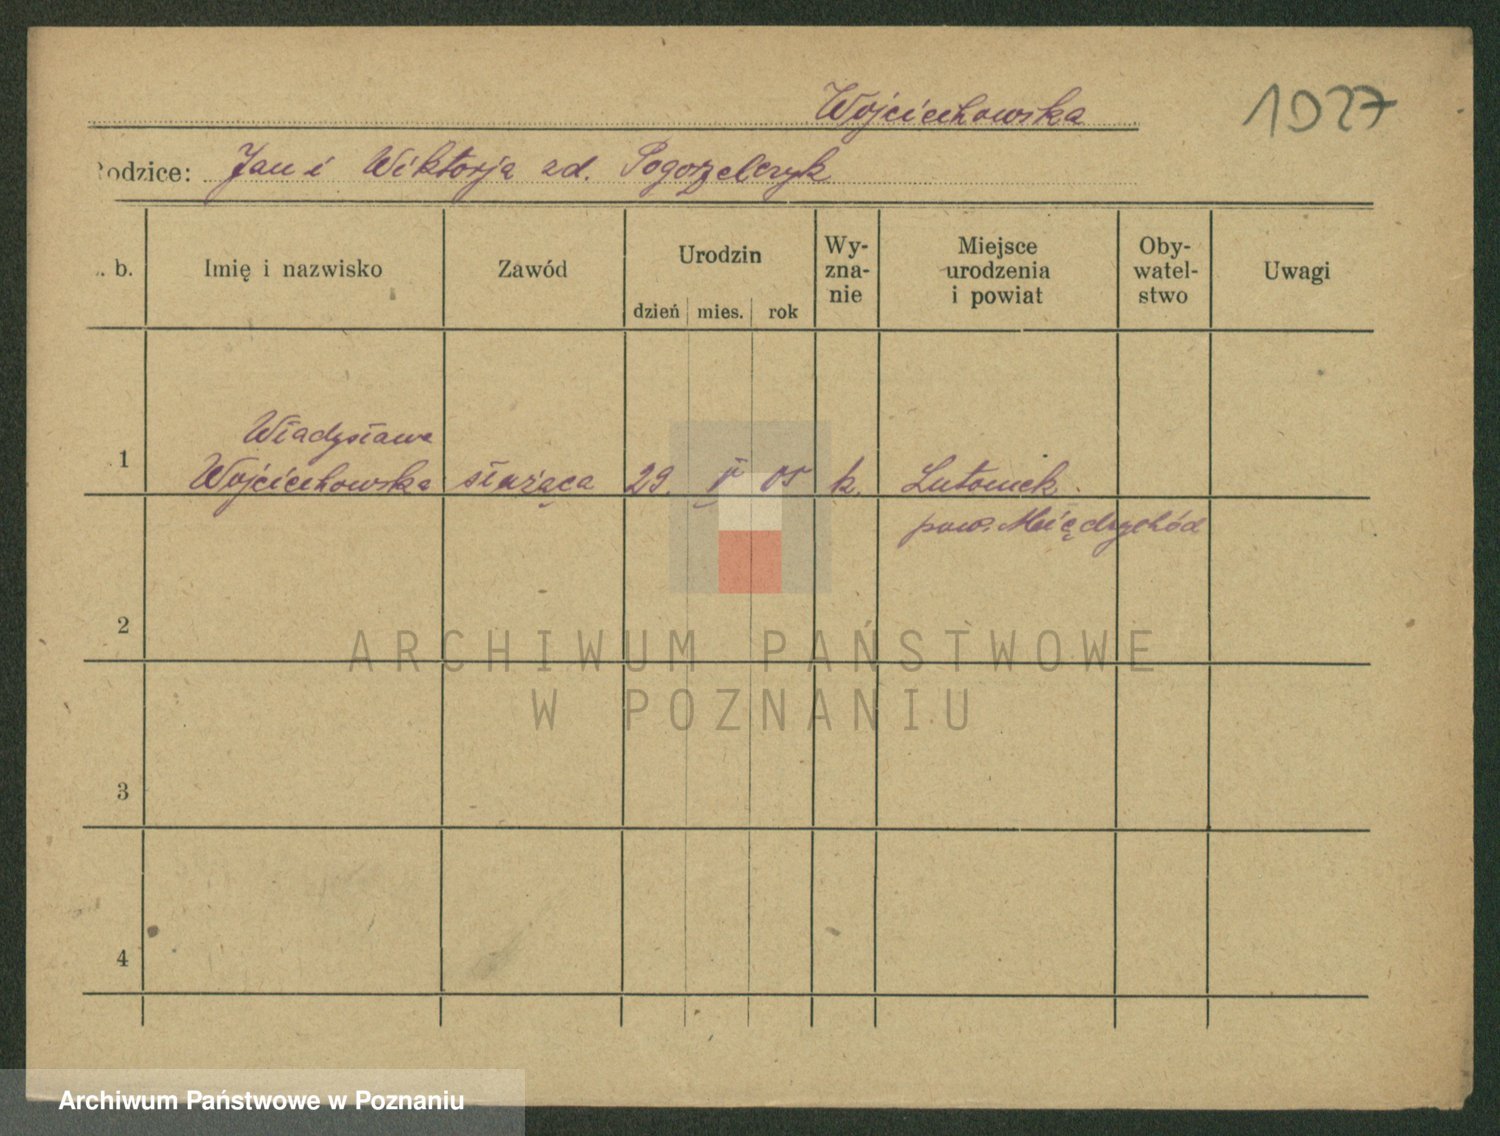 Wojciechowska
1927
Rodzice: Jan i Wiktorja zd. Pogorzelczyk
. b. Imię i nazwisko Zawód Urodzin dzień mies. rok Wy-zna-nie Miejsce urodzenia i powiat Oby-watel-stwo Uwagi
Władysława
1 Wojciechowska służąca 29. V 05 k. Lutomek
pow. Międzychód
2
ARCHIWUM PAŃSTWOWE
W POZNANIU
3
4
Archiwum Państwowe w Poznaniu